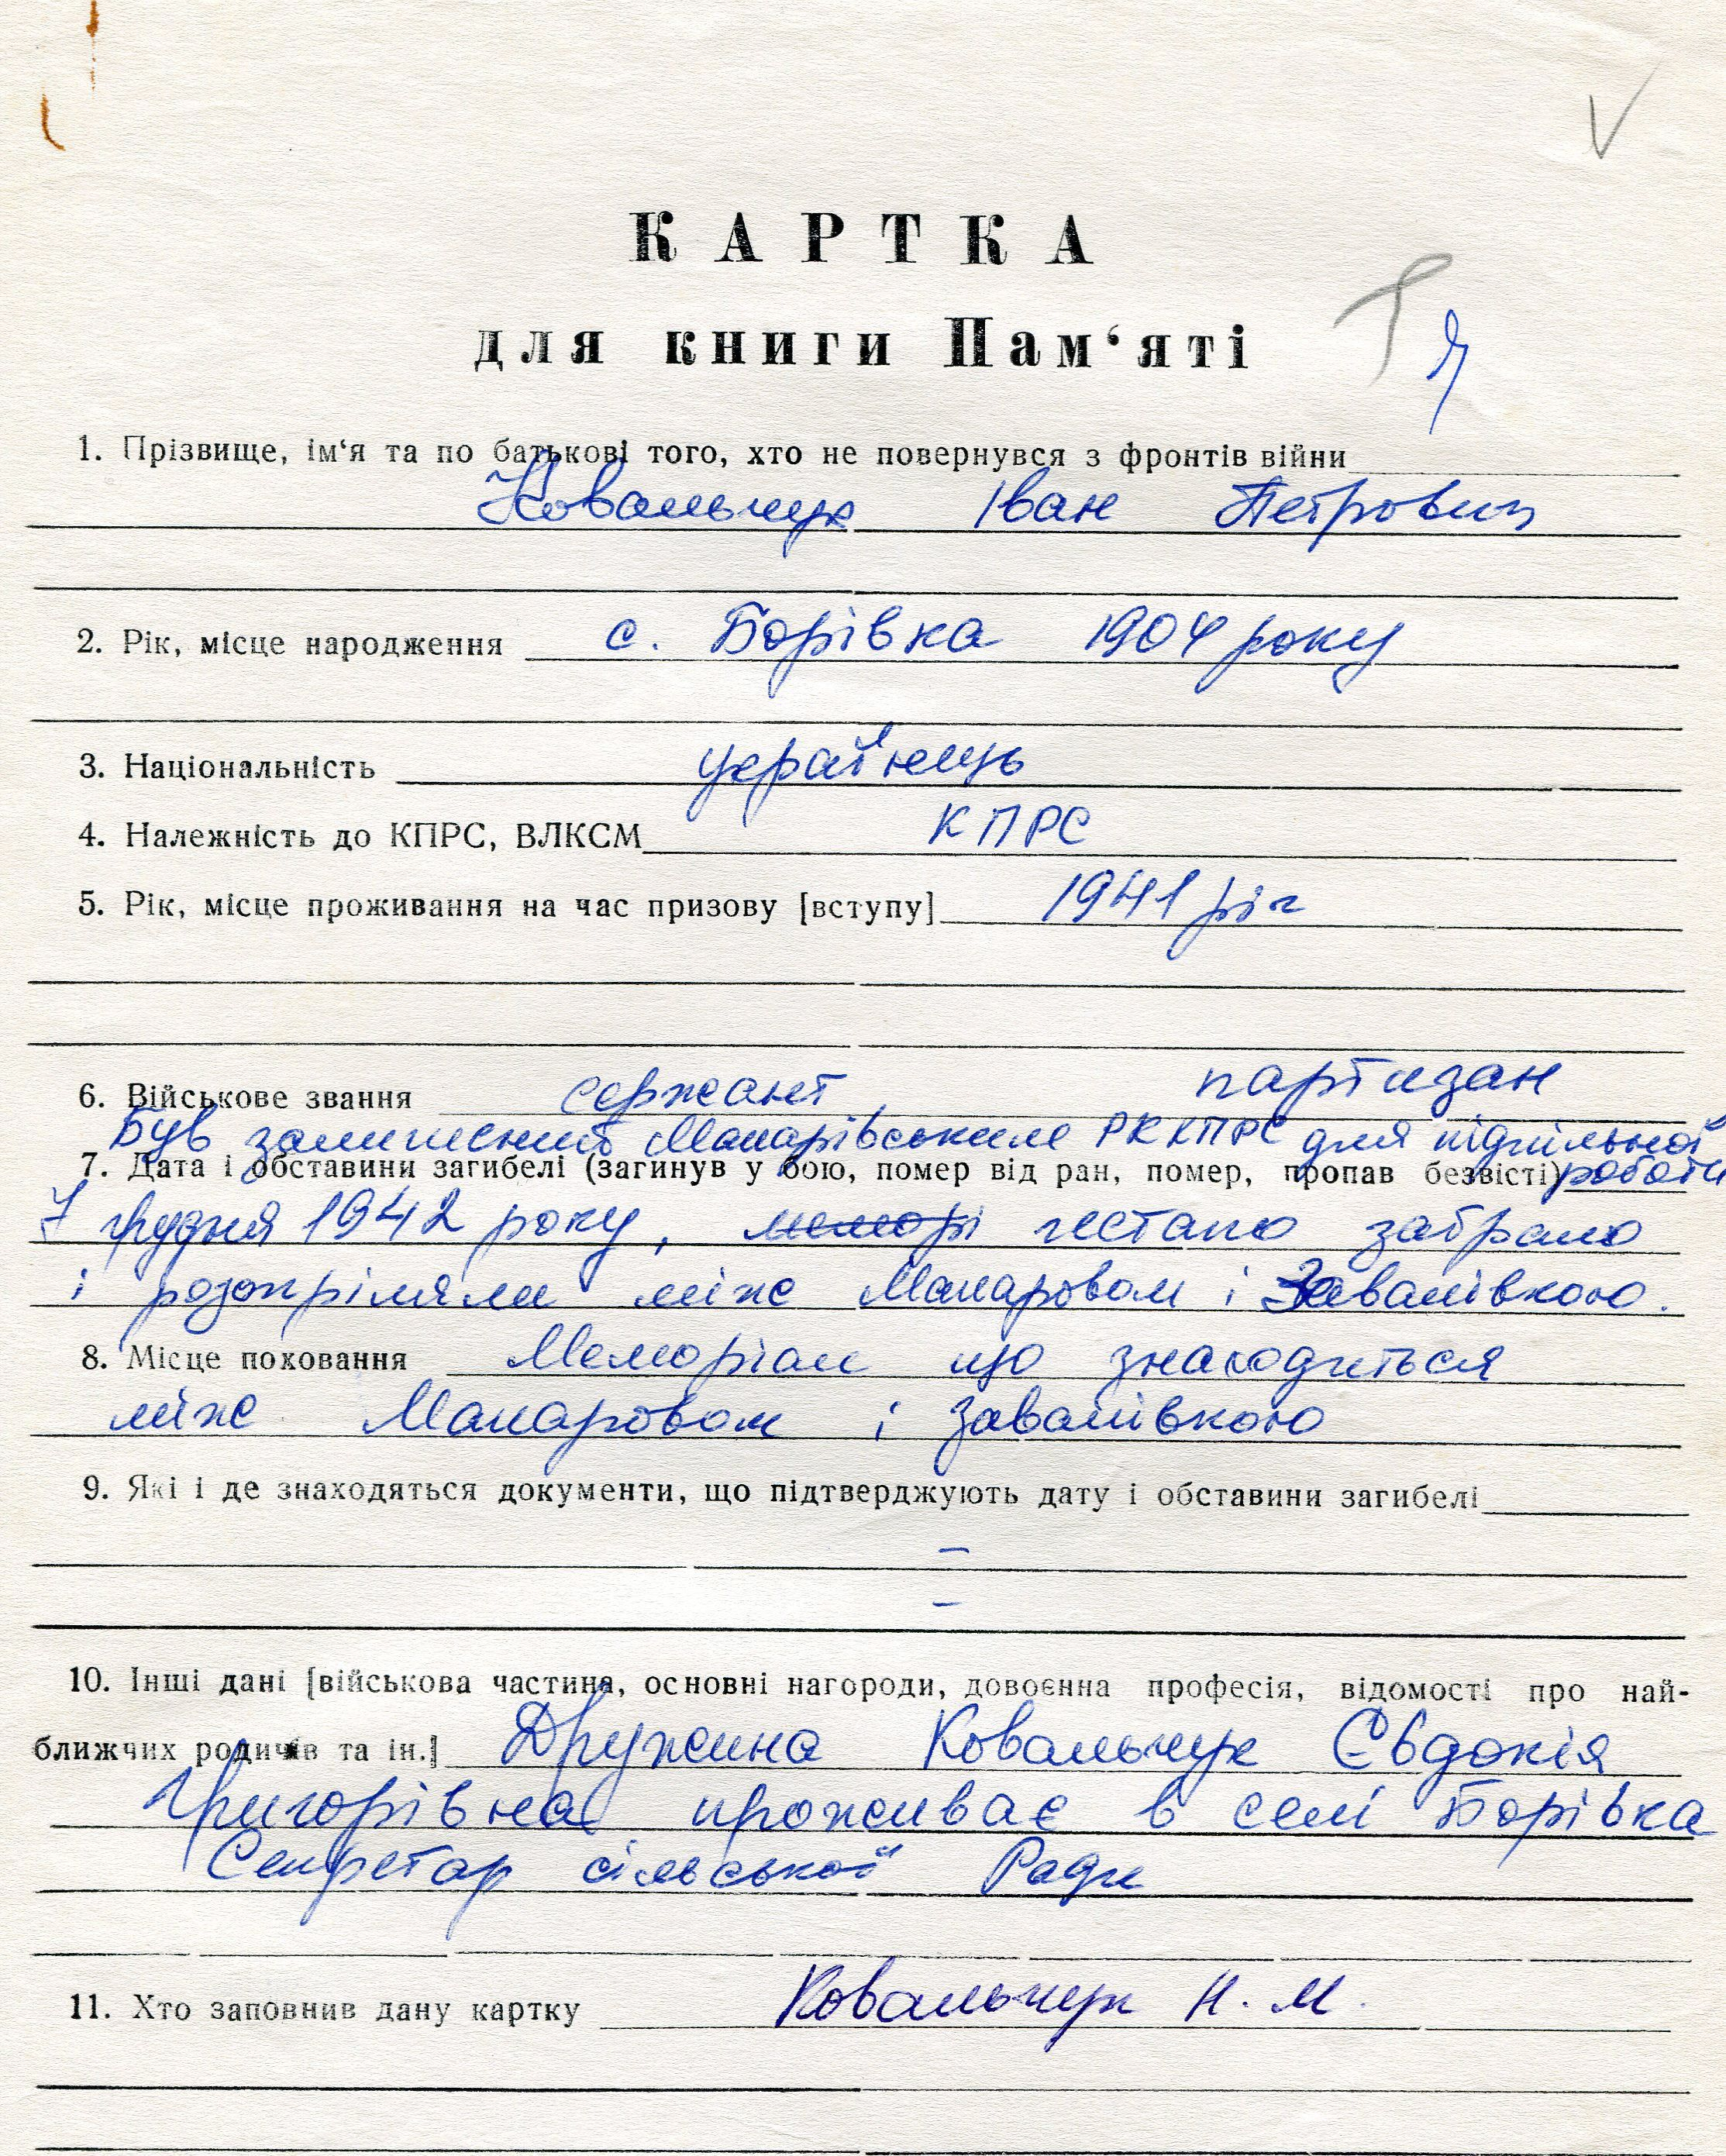 КАРТКА
для книги Пам‘яті
1. Прізвище, ім‘я та по батькові того, хто не повернувся з фронтів війни
Ковальчук Іван Петрович
2. Рік, місце народження с. Борівка 1904 року
3. Національність українець
4. Належність до КПРС, ВЛКСМ КПРС
5. Рік, місце проживання на час призову [вступу] 1941 рік
6. Військове звання сержант, партизан
Був залишений Макарівським РККПРС для підпільної
7. Дата і обставини загибелі (загинув у бою, помер від ран, помер, пропав безвісті) роботи
7 грудня 1942 року, гестапо забрало
і розстріляли між Макаровом і Завалівкою.
8. Місце поховання Меморіал що знаходиться
між Макаровом і Завалівкою
9. Які і де знаходяться документи, що підтверджують дату і обставини загибелі
–
–
10. Інші дані [військова частина, основні нагороди, довоєнна професія, відомості про най-
ближчих родичів та ін.] Дружина Ковальчук Євдокія
Григорівна проживає в селі Борівка
Секретар сільської Ради
11. Хто заповнив дану картку Ковальчук Н. М.